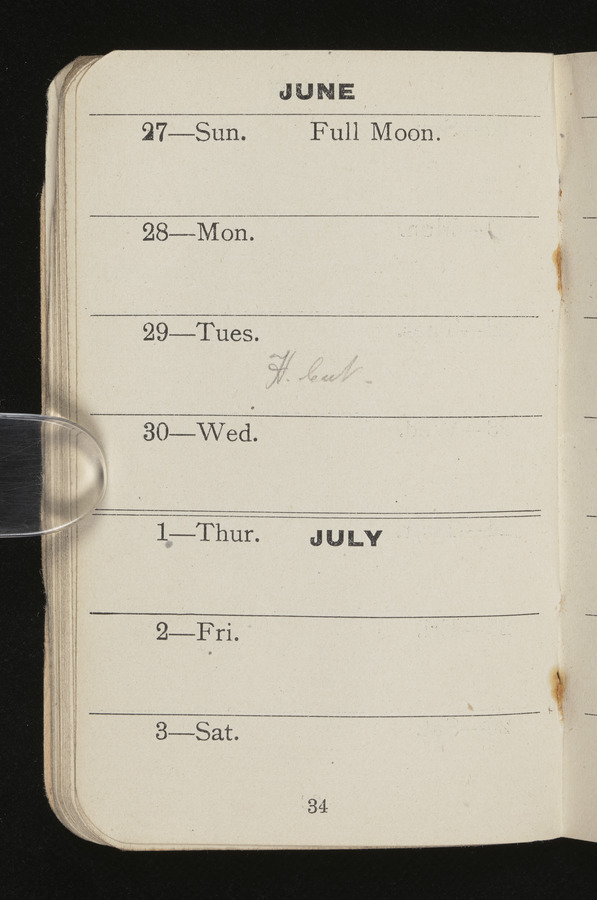 JUNE
27—Sun. Full Moon.
28—Mon.
29—Tues.
H. cut.
30—Wed.
1—Thur. JULY
2—Fri.
3—Sat.
34